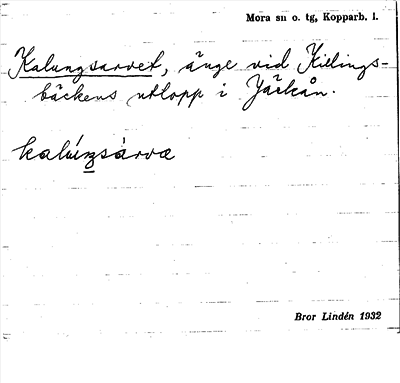 Mora sn o. tg, Kopparb. l.
Kalungsarvet, änge vid Killings-
bäckens utlopp i Järkån.
kalúŋsàrvæ
Bror Lindén 1932